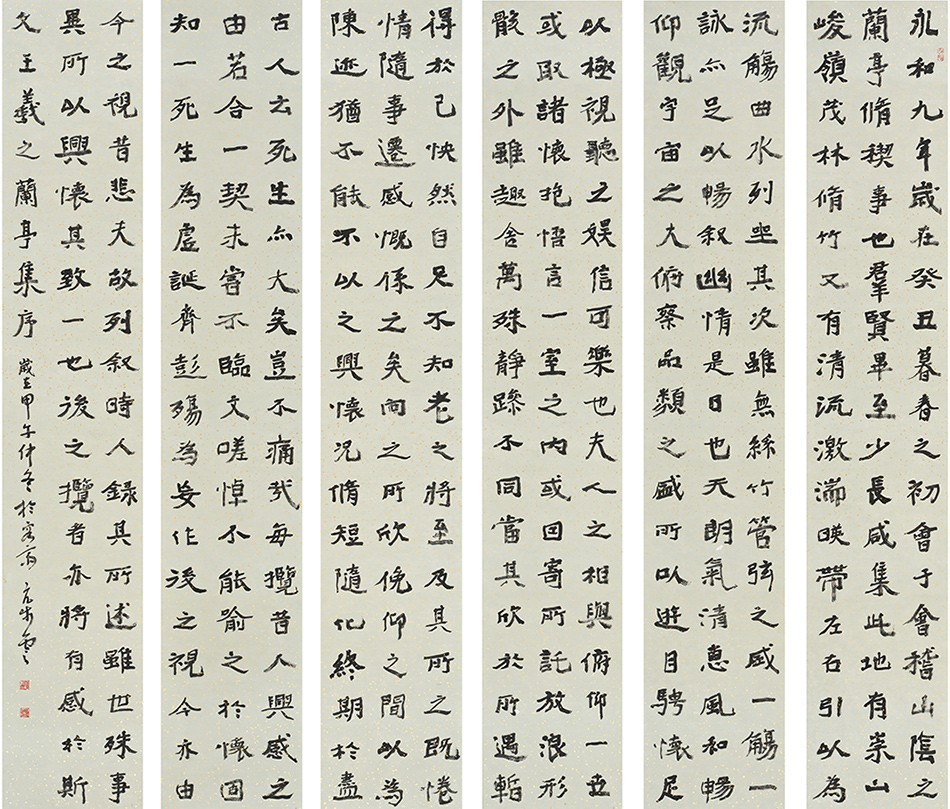 永和九年歲在癸丑暮春之初會于會稽山陰之
蘭亭脩禊事也羣賢畢至少長咸集此地有崇山
峻嶺茂林脩竹又有清流激湍暎帶左右引以為
流觴曲水列坐其次雖無絲竹管弦之盛一觴一
詠亦足以暢叙幽情是日也天朗氣清惠風和暢
仰觀宇宙之大俯察品類之盛所以遊目騁懷足
以極視聽之娛信可樂也夫人之相與俯仰一世
或取諸懷抱悟言一室之內或因寄所託放浪形
骸之外雖趣舍萬殊靜躁不同當其欣於所遇暫
得於己怏然自足不知老之將至及其所之既惓
情隨事遷感慨係之矣向之所欣俛仰之閒以為
陳迹猶不能不以之興懷況脩短隨化終期於盡
古人云死生亦大矣豈不痛哉每攬昔人興感之
由若合一契未嘗不臨文嗟悼不能喻之於懷固
知一死生為虛誕齊彭殤為妄作後之視今亦由
今之視昔悲夫故列叙時人録其所述雖世殊事
異所以興懷其致一也後之攬者亦將有感於斯
文王羲之蘭亭集序 歲在甲午仲冬於